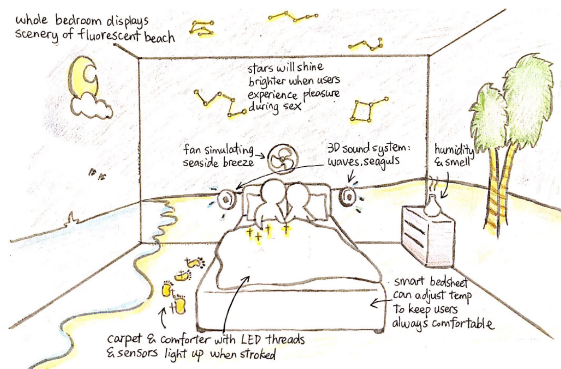 whole bedroom displays
scenery of fluorescent beach
stars will shine
brighter when users
experience pleasure
during sex
fan simulating
seaside breeze
3D sound system:
waves, seagulls
humidity
& smell
smart bedsheet
can adjust temp
to keep users
always comfortable
carpet & comforter with LED threads
& sensors light up when stroked